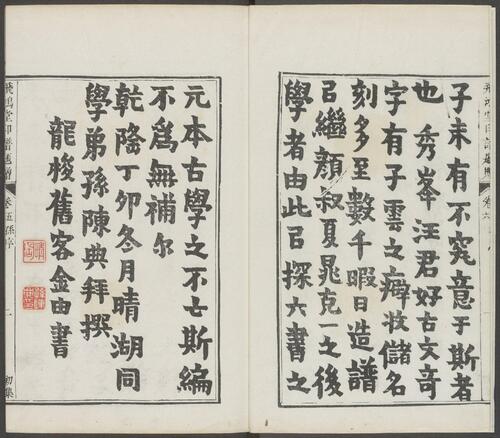 子未有不究意于斯者
也秀峯汪君好古文奇
字有子雲之癖收儲名
刻多至數千暇日造譜
㠯繼顏叔夏晁克一之後
學者由此㠯探六書之
元本古學之不亡斯編
不爲無補尔
乾隆丁卯冬月晴湖同
學弟孫陳典拜撰
龍梭舊客金由書
飛鴻堂印譜
序
一
初集